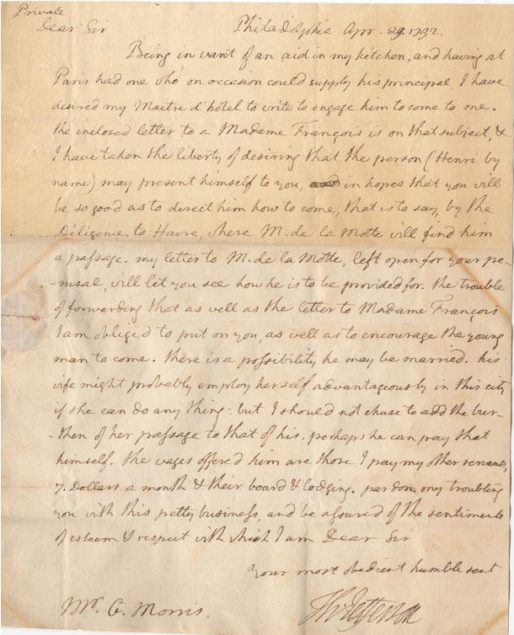 Private
Dear Sir Philadelphia Apr. 29. 1792.
Being in want of an aid in my kitchen, and having at
Paris had one who on occasion could supply his principal, I have
desired my Maitre d'hotel to write to engage him to come to me.
the inclosed letter to a Madame François is on that subject, &
I have taken the liberty of desiring that the person (Henri by
name) may present himself to you, in hopes that you will
be so good as to direct him how to come, that is to say, by the
Diligence to Havre, where M. de la Motte will find him
a passage. my letter to M. de la Motte, left open for your pe-
-rusal, will let you see how he is to be provided for. the trouble
of forwarding that as well as the letter to Madame François
I am oblig'd to put on you, as well as to encourage the young
man to come. there is a possibility he may be married. his
wife might probably employ herself advantageously in this city
if she can do any thing: but I should not chuse to add the bur-
-then of her passage to that of his. perhaps he can pay that
himself. the wages offered him are those I pay my other servants,
7. Dollars a month & their board & lodging. pardon my troubling
you with this pretty business, and be assured of the sentiments
of esteem & respect with which I am Dear Sir
Your most obedient humble servt
Th: Jefferson
Mr. G. Morris.